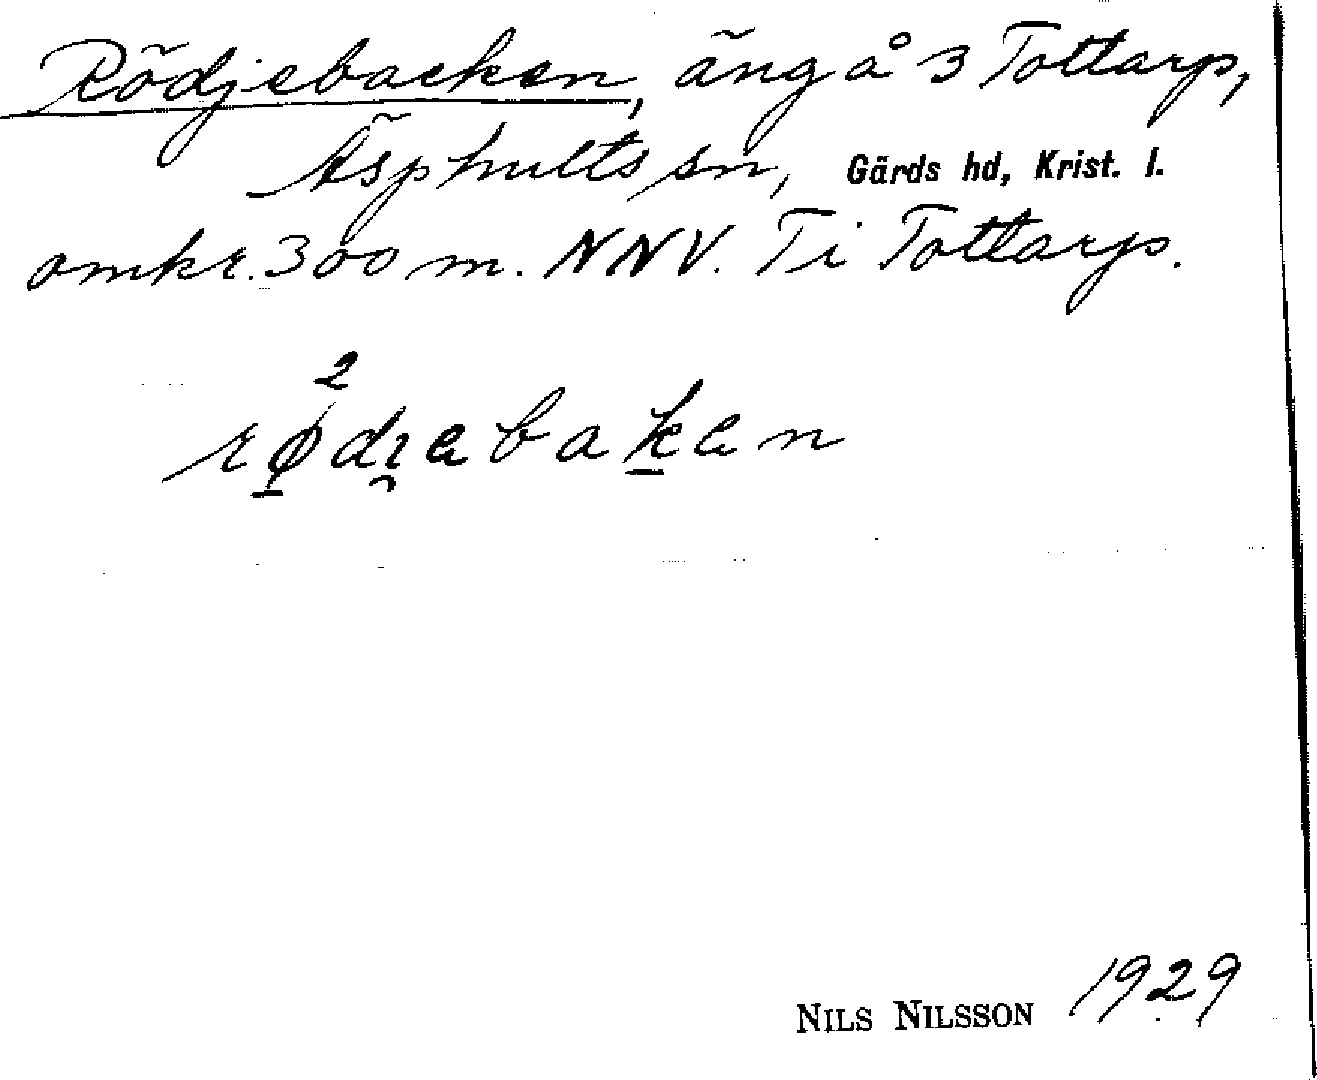 Rödjebacken, äng å 3 Tottarp,
Äsphults sn, Gärds hd, Krist. l.
omkr. 300 m. NNV. Ti Tottarp.
2
rødɿebaken
NILS NILSSON 1929